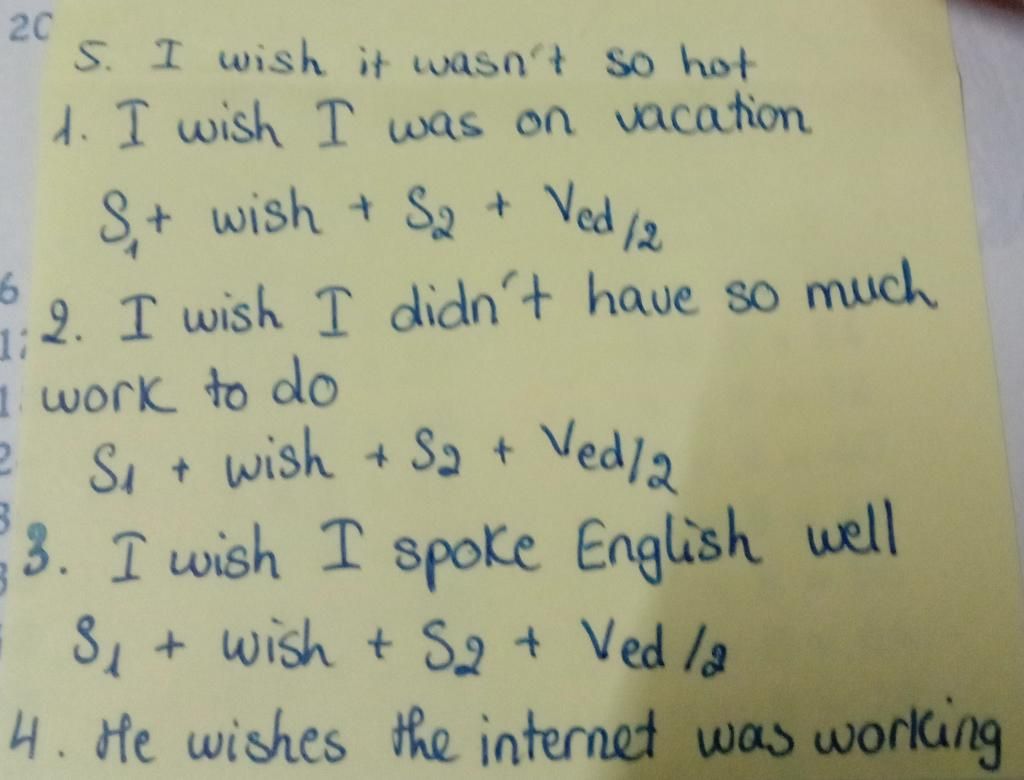 20
5. I wish it wasn't so hot
1. I wish I was on vacation
S1 + wish + S2 + Ved/2
2. I wish I didn't have so much
work to do
S1 + wish + S2 + Ved/2
3. I wish I spoke English well
S1 + wish + S2 + Ved/2
4. He wishes the internet was working